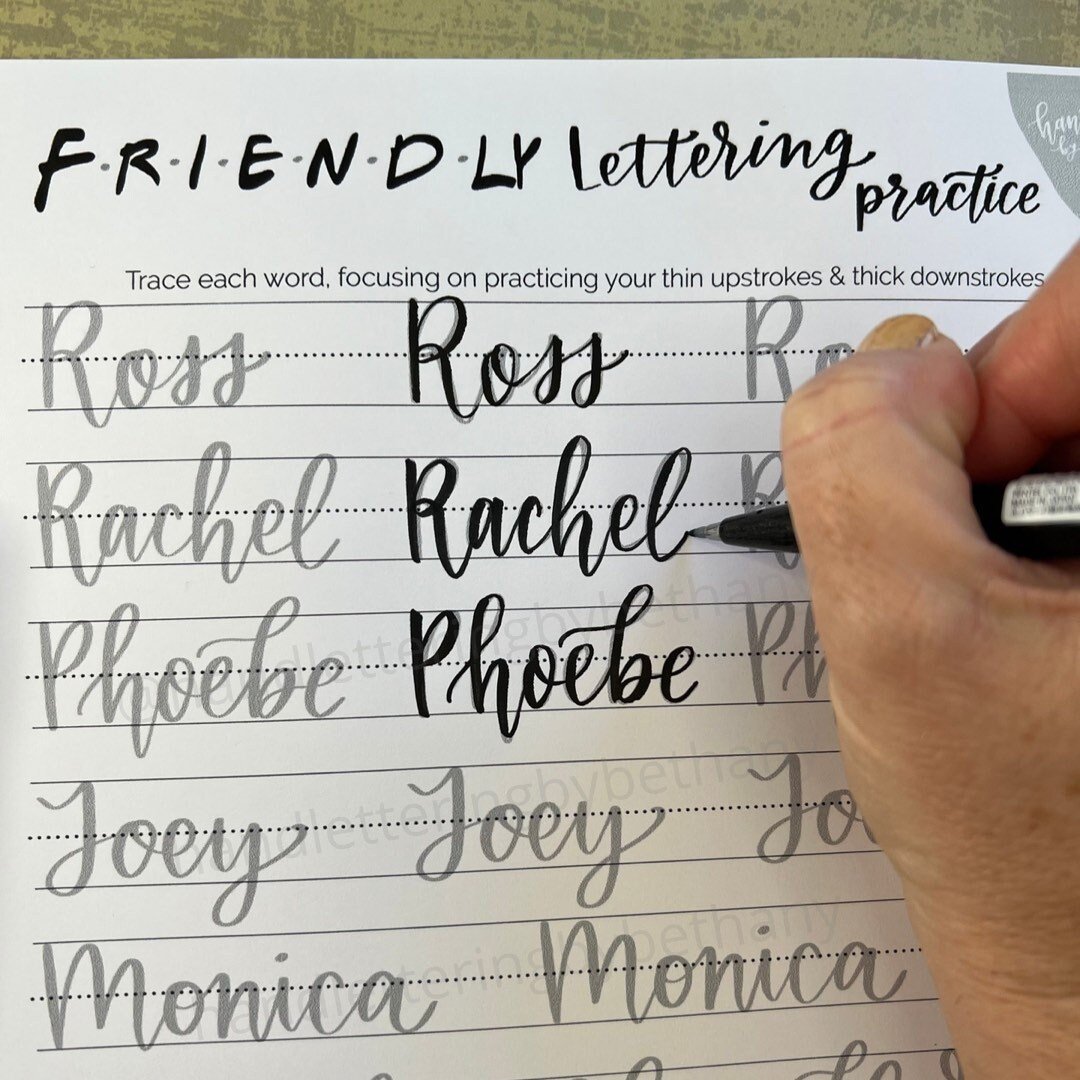 F·R·I·E·N·D·LY Lettering practice
Trace each word, focusing on practicing your thin upstrokes & thick downstrokes
Ross Ross Ro
Rachel Rachel R
Phoebe Phoebe Ph
@handletteringbybethany
Joey Joey Jo
handletteringbybethany
Monica Monica
handletteringbybethany